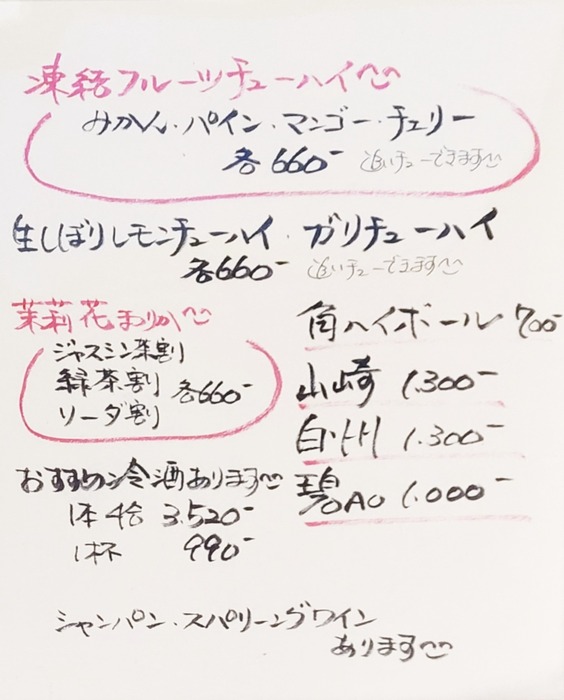 凍結フルーツチューハイ
みかん・パイン・マンゴー・チェリー
各660-
追いチューできます
生しぼりレモンチューハイ・ガリチューハイ
各660-
追いチューできます
茉莉花まりか
ジャスミン茶割
緑茶割
ソーダ割
各660-
角ハイボール 700-
山崎 1.300-
白州 1.300-
碧Ao 1.000-
おすすめ冷酒あります
1本 3.520-
1杯 990-
シャンパン・スパリーングワイン
あります